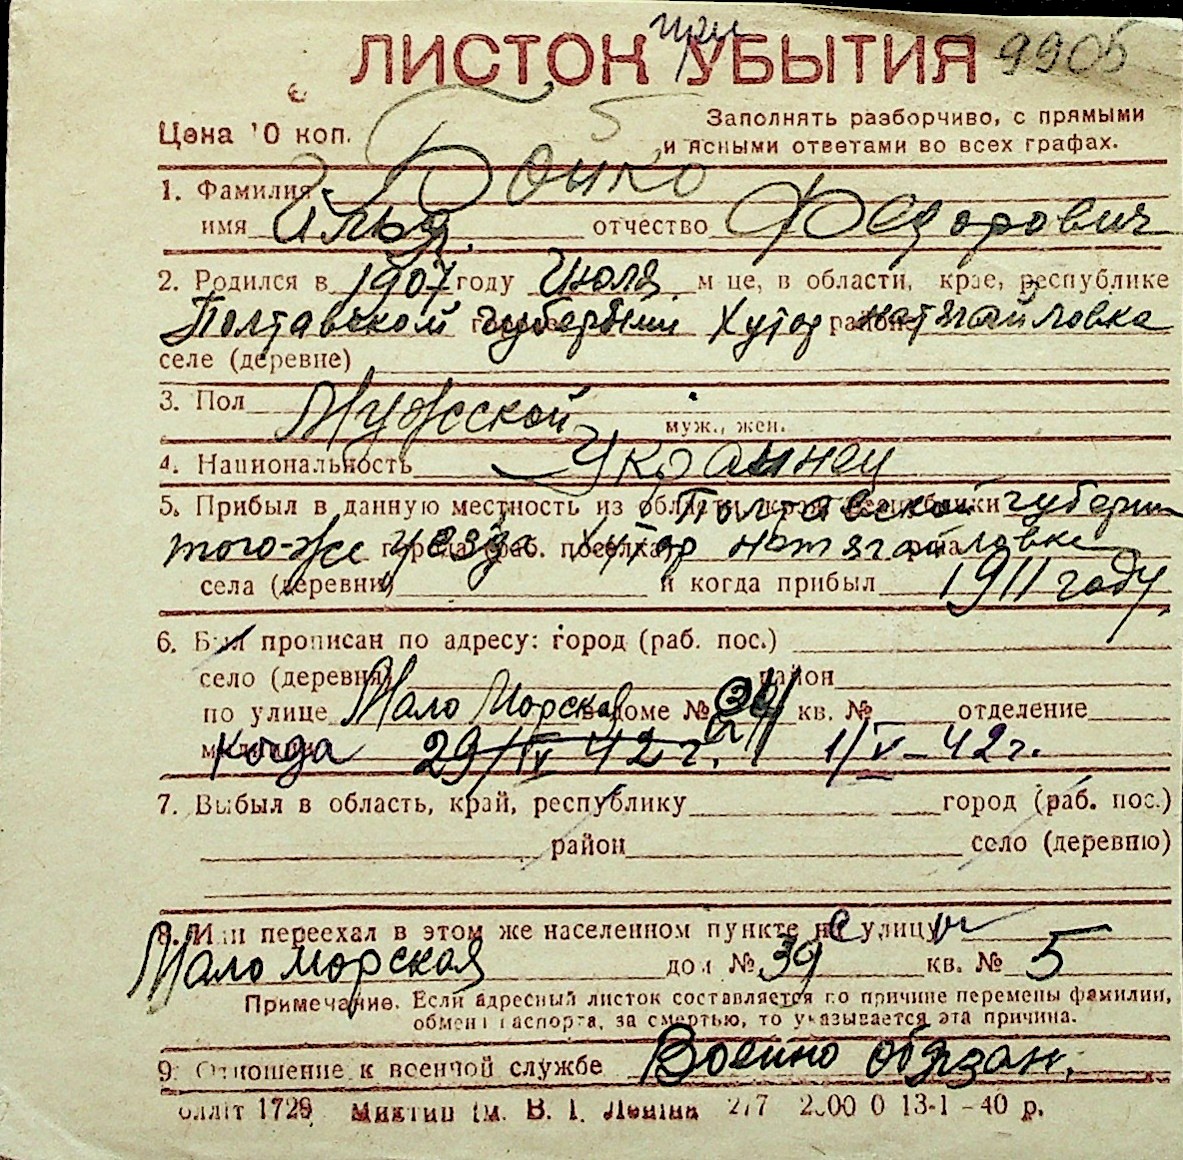 при
ЛИСТОК УБЫТИЯ 9905
Цена 10 коп. 5 Заполнять разборчиво, с прямыми
и ясными ответами во всех графах.
1. Фамилия Бойко
имя Илья отчество Федорович
2. Родился в 1907 году Июля м-це, в области, крае, республике
Полтавской губернии Хутор района натягайловка
селе (деревне)
3. Пол Мужской муж., жен.
4. Национальность Украинец
5. Прибыл в данную местность из области, края, республики Полтавской губернии
того-же уезда города (раб. поселка) Хутор натягайловка
села (деревни) и когда прибыл 1911 году
6. Был прописан по адресу: город (раб. пос.)
село (деревня) район
по улице Мало Морская в доме № кв. № отделение
Когда 29/IV 42 г. 1/V-42 г.
7. Выбыл в область, край, республику город (раб. пос.)
район село (деревню)
8. Или переехал в этом же населенном пункте с улицы
Мало морская дом № 39 кв. № 5
Примечание. Если адресный листок составляется по причине перемены фамилии,
обмена паспорта, за смертью, то указывается эта причина.
9. Отношение к военной службе Военно обязан.
облліт 1729 ім. В. І. Леніна 2/7 13-1-40 р.